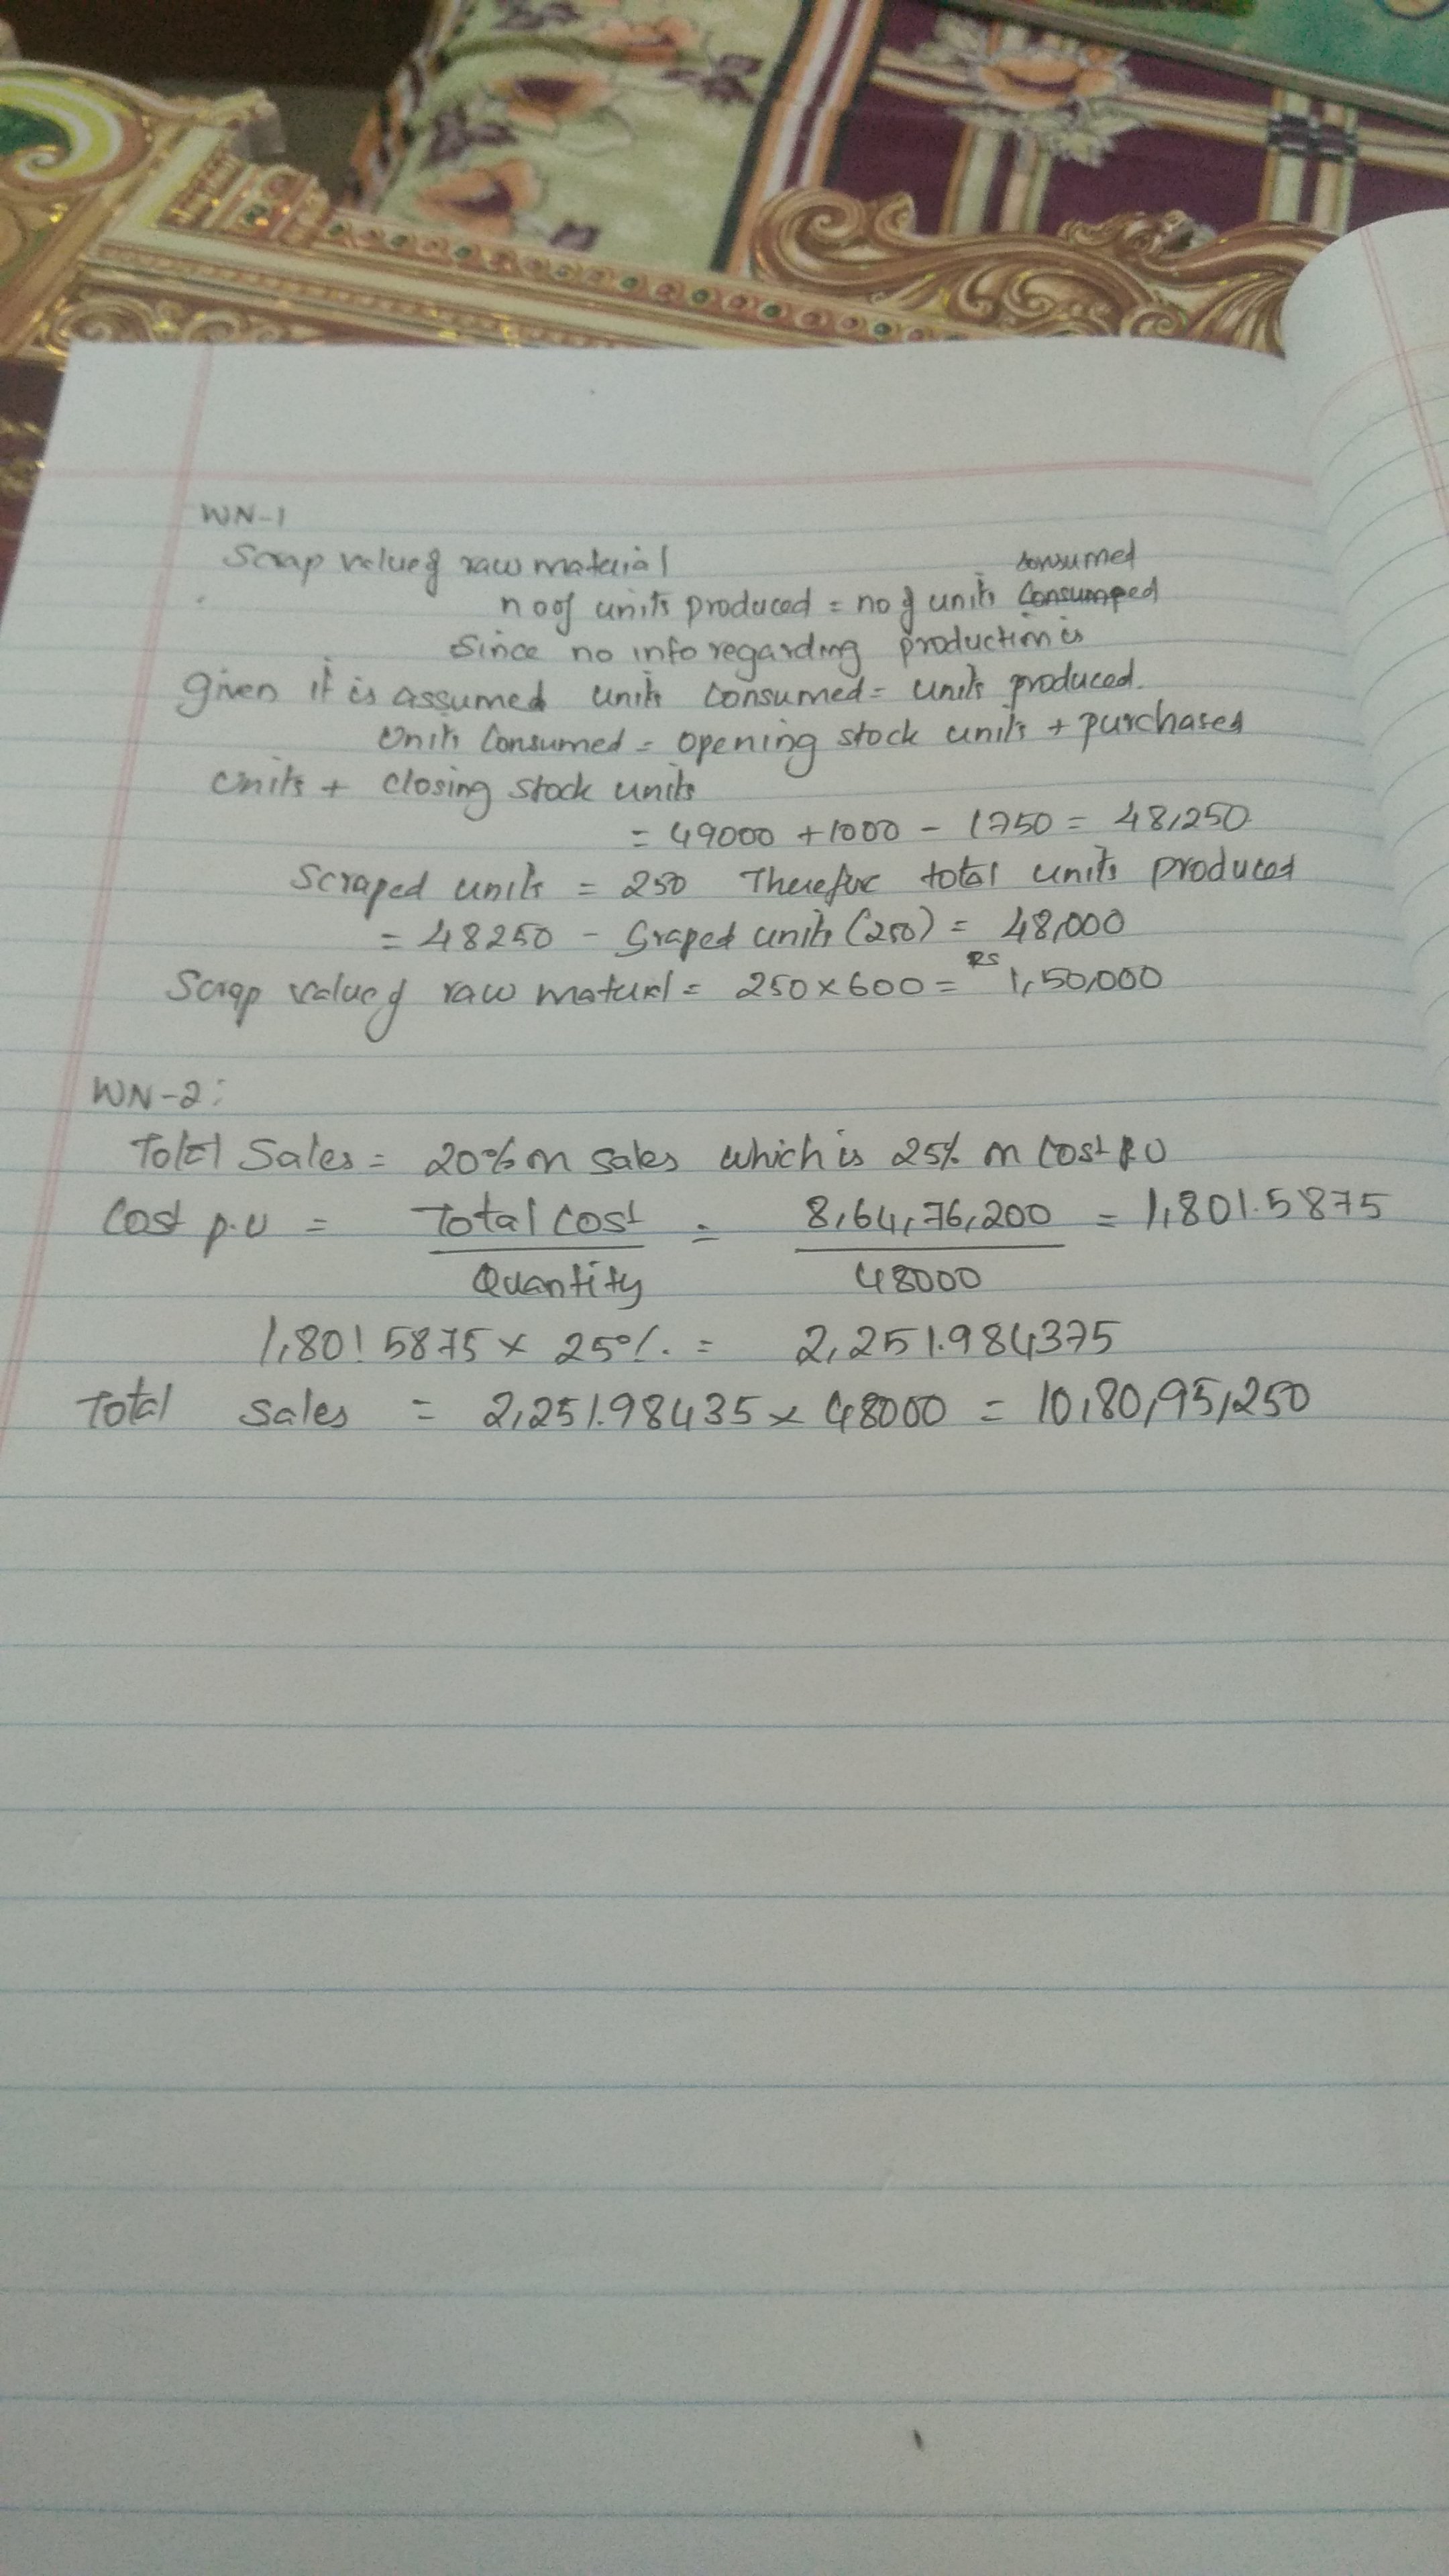 WN-1
Scrap value of raw material
consumed
no of units produced = no of units Consumped
Since no info regarding production is
given it is assumed units consumed = units produced.
Units Consumed = opening stock units + purchased
Units + closing stock units
= 49000 + 1000 - 1750 = 48,250
Scraped units = 250 Therefore total units produced
= 48250 - Scraped units (250) = 48,000
Scrap value of raw material = 250 x 600 = RS 1,50,000
WN-2:
Total Sales = 20% on sales which is 25% on cost P.U
Cost p.u = Total Cost / Quantity = 8,64,76,200 / 48000 = 1,801.5875
1,801.5875 x 25% = 2,251.984375
Total sales = 2,251.98435 x 48000 = 10,80,95,250